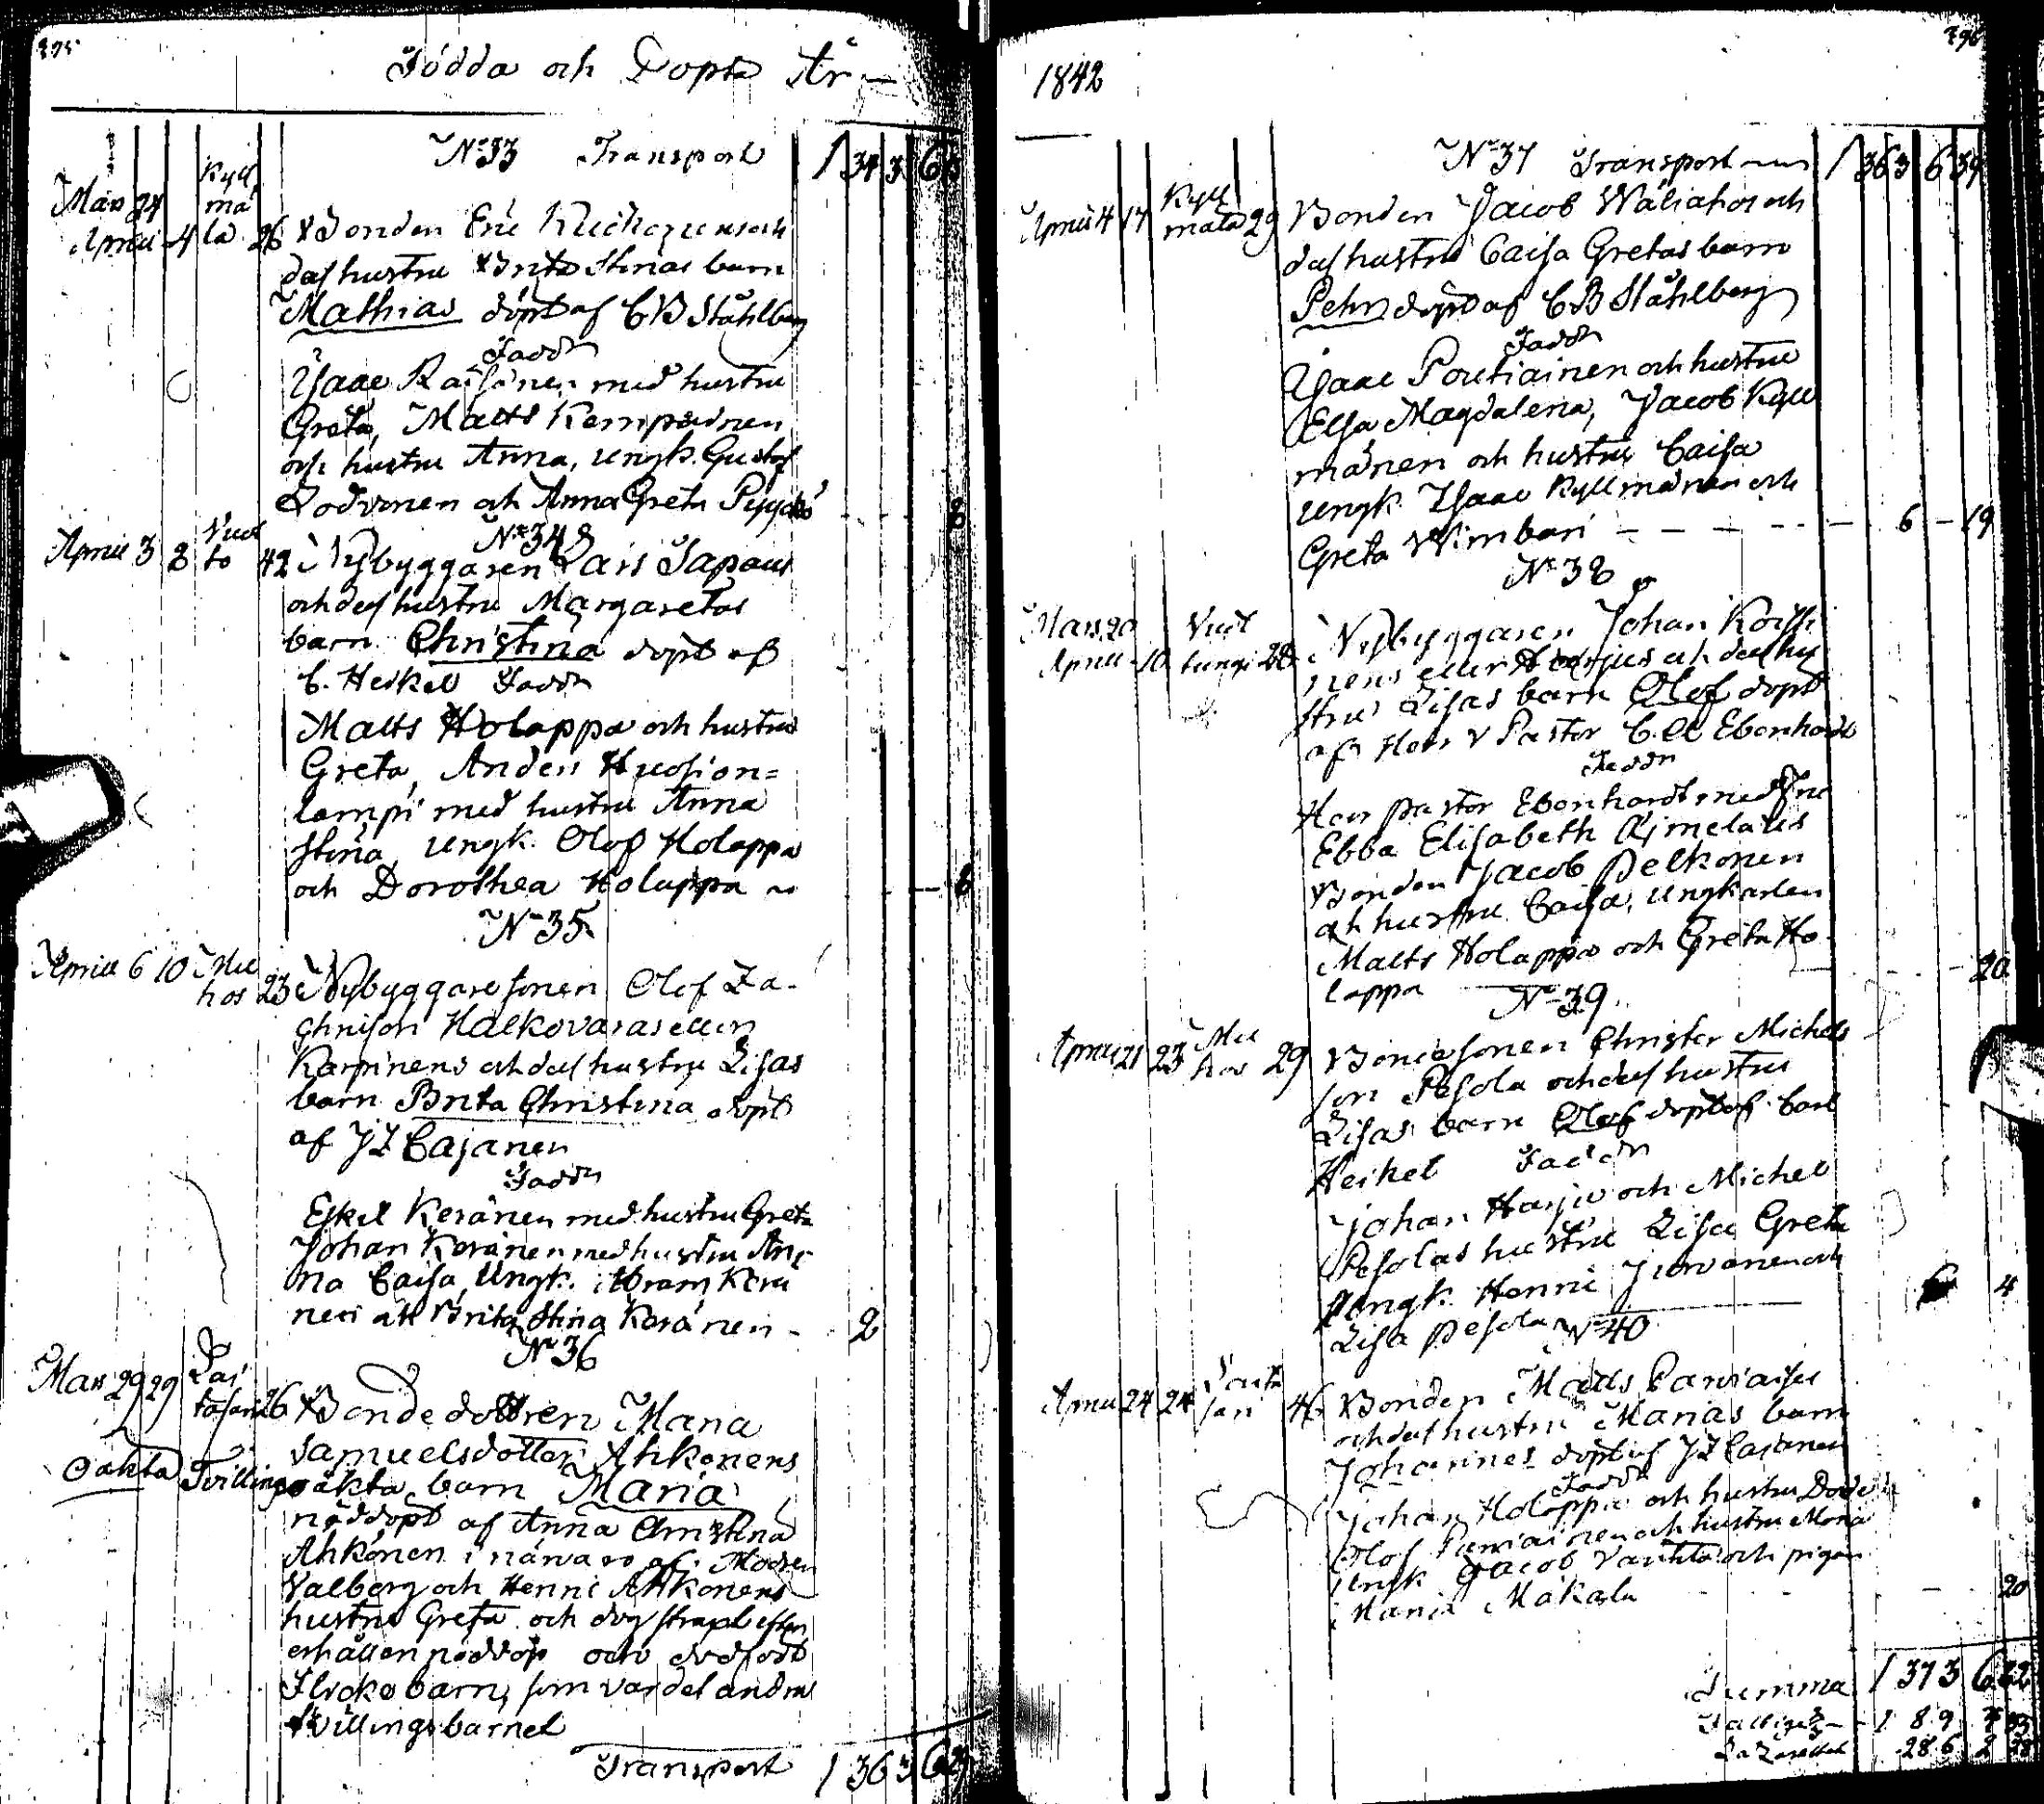 275
Födda och Döpta År
N 33 Transport 1 34 3 6
Kyll
Mars 28 mä
April 4 lä 26 Bonden Eric
dess hustru Brita Stinas barn
Mathias döpt af C B Ståhlberg
Fadd
Isaac Raisänen med hustru
Greta, Matts Kemppainen
och hustru Anna, ungk. Gustaf
och Anna Greta
8
N 34
April 3 8 Vuot
to 42 Nybyggaren Lars Tapani
och dess hustru Margaretas
barn Christina döpt af
C. Heikel Fadd
Matts Holappa och hustru
Greta, Anders Huosion=
lampi med hustru Anna
Stina, ungk. Olof Holappa
och Dorothea Holappa 6
N 35
April 6 10 Mu
hos 23 Nybyggaresonen Olof Za-
chrisson Halkovaaras eller
Karpinens och dess hustru Lisas
barn Brita Christina döpt
af J Z Cajanen
Fadd
Eskel Keränen med hustru Greta
Johan Keränen med hustru An-
na Caisa, Ungk. Abram Kerä
nen och Brita Stina Keränen - 2
N 36
Mars 29 29
26 Bondedottren Maria
Samuelsdotter Ahkonens
Oäkta Tvilling oäkta barn Maria
nöddöpt af Anna Christina
Ahkonen i närvaro af Modren
Valborg och Henric Ahkonens
hustru Greta och dog straxt efter
erhållen nöddop och dödfödt
Flickobarn, som var det andra
tvillingsbarnet
Transport 1 36 3 6 39
1842
276
N 37 Transport 1 36 3 6 39
April 14 17 Kyll
mälä 29 Bonden Jacob Wäliahos och
dess hustru Caisa Gretas barn
Pehr döpt af C B Ståhlberg
Fadd
Isaac Poutiainen och hustru
Elsa Magdalena, Jacob Kyll
mänen och hustru Caisa
ungk. Isaac Kyllmänen och
Greta Wimbari 6 - 19
N 38
Mars 20
April 10 28 Nybyggaren Johan
nens eller Harjus och dess hu
stru Lisas barn Olof döpt
af Herr V Pastor Eberhardt
Fadd
Herr Pastor Eberhardt med Fru
Ebba Elisabeth Ajmelæus
Bonden Jacob Pelkonen
och hustru Caisa, ungkarlen
Matts Holappa och Greta Ho
lappa 20
N 39
April 21 23 Mu
hos 29 Bondesonen Christer Michels
son Pesola och dess hustru
Lisas barn Olof döpt af Carl
Heikel Fadd
Johan Harju och Michel
Pesolas hustru Lisa Greta
Ungk. Henric Juvonen och 4
Lisa Pesola
N 40
April 24 24 46 Bonden Matts Parviaises
och dess hustru Marias barn
Johannes döpt af J Z Cajanen
Fadd
Johan Holappa och hustru
Olof Parviainen och hustru Maria
Ungk Jacob och pigan
Maria Mäkälä 20
Summa 1 37 3 6 22
Fattige 1 89
Lazarettet 28 6 2